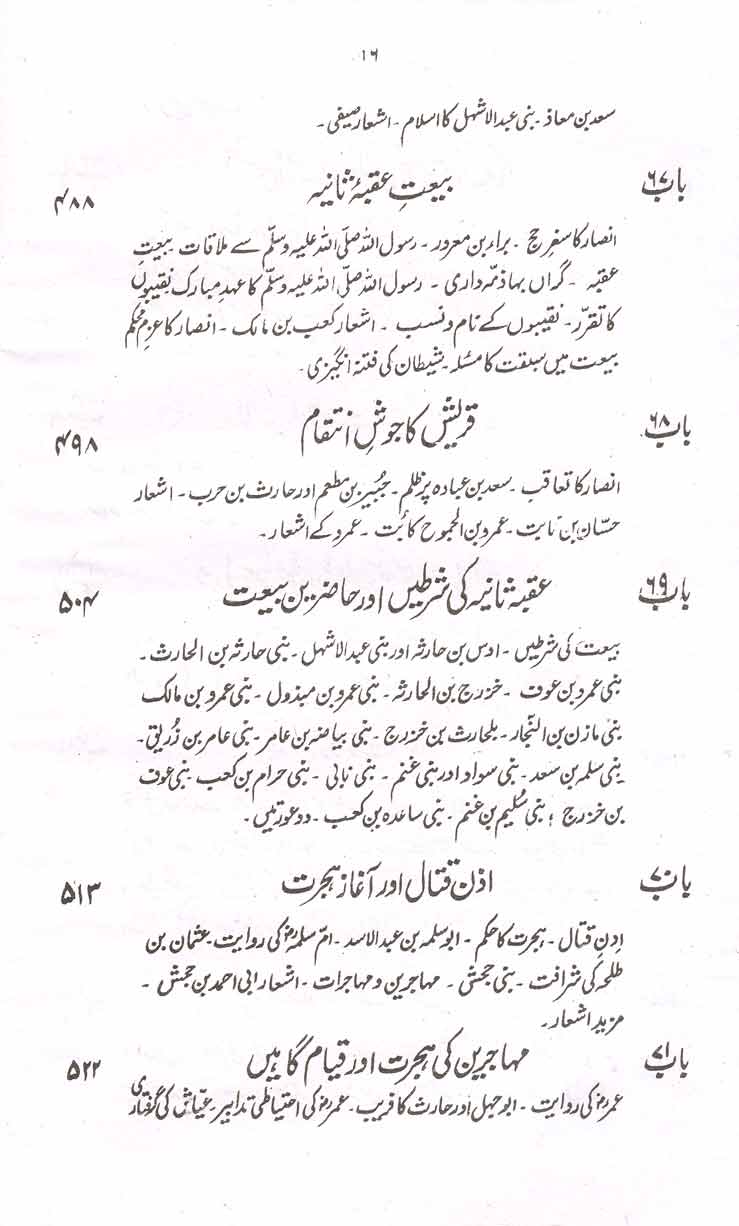 ۱۶
سعد بن معاذ۔ بنی عبدالاشہل کا اسلام۔ اشعار صیفی۔
باب ۶۷ بیعتِ عقبۂ ثانیہ ۴۸۸
انصار کا سفرِ حج۔ براء بن معرور۔ رسول اللہ صلّی اللہ علیہ وسلّم سے ملاقات بیعتِ
عقبہ۔ گراں بہا ذمہ داری۔ رسول اللہ صلّی اللہ علیہ وسلّم کا عہدِ مبارک نقیبوں
کا تقرّر۔ نقیبوں کے نام و نسب۔ اشعار کعب بن مالک۔ انصار کا عزمِ محکم
بیعت میں سبقت کا مسئلہ۔ شیطان کی فتنہ انگیزی۔
باب ۶۸ قریش کا جوشِ انتقام ۴۹۸
انصار کا تعاقب۔ سعد بن عبادہ پر ظلم۔ جُبیر بن مطعم اور حارث بن حرب۔ اشعار
حسّان بن ثابت۔ عمرو بن الجموح کا بُت۔ عمرو کے اشعار۔
باب ۶۹ عقبۂ ثانیہ کی شرطیں اور حاضرین بیعت ۵۰۴
بیعت کی شرطیں۔ اوس بن حارثہ اور بنی عبدالاشہل۔ بنی حارثہ بن الحارث۔
بنی عمرو بن عوف۔ خزرج بن الحارثہ۔ بنی عمرو بن مبذول۔ بنی عمرو بن مالک
بنی مازن بن النّجار۔ بلحارث بن خزرج۔ بنی بیاضہ بن عامر۔ بنی عامر بن زُریق۔
بنی سلمہ بن سعد۔ بنی سواد اور بنی غنم۔ بنی نابی۔ بنی حرام بن کعب۔ بنی عوف
بن خزرج؛ بنی سُلیم بن غنم۔ بنی ساعدہ بن کعب۔ دو عورتیں۔
باب ۷۰ اذن قتال اور آغاز ہجرت ۵۱۳
اِذنِ قتال۔ ہجرت کا حکم۔ ابو سلمہ بن عبدالاسد۔ امّ سلمہؓ کی روایت۔ عثمان بن
طلحہ کی شرافت۔ بنی جحش۔ مہاجرین و مہاجرات۔ اشعار ابی احمد بن جحش۔
مزید اشعار۔
باب ۷۱ مہاجرین کی ہجرت اور قیام گاہیں ۵۲۲
عمرؓ کی روایت۔ ابوجہل اور حارث کا فریب۔ عمرؓ کی احتیاطی تدابیر۔ عیّاش کی گرفتاری